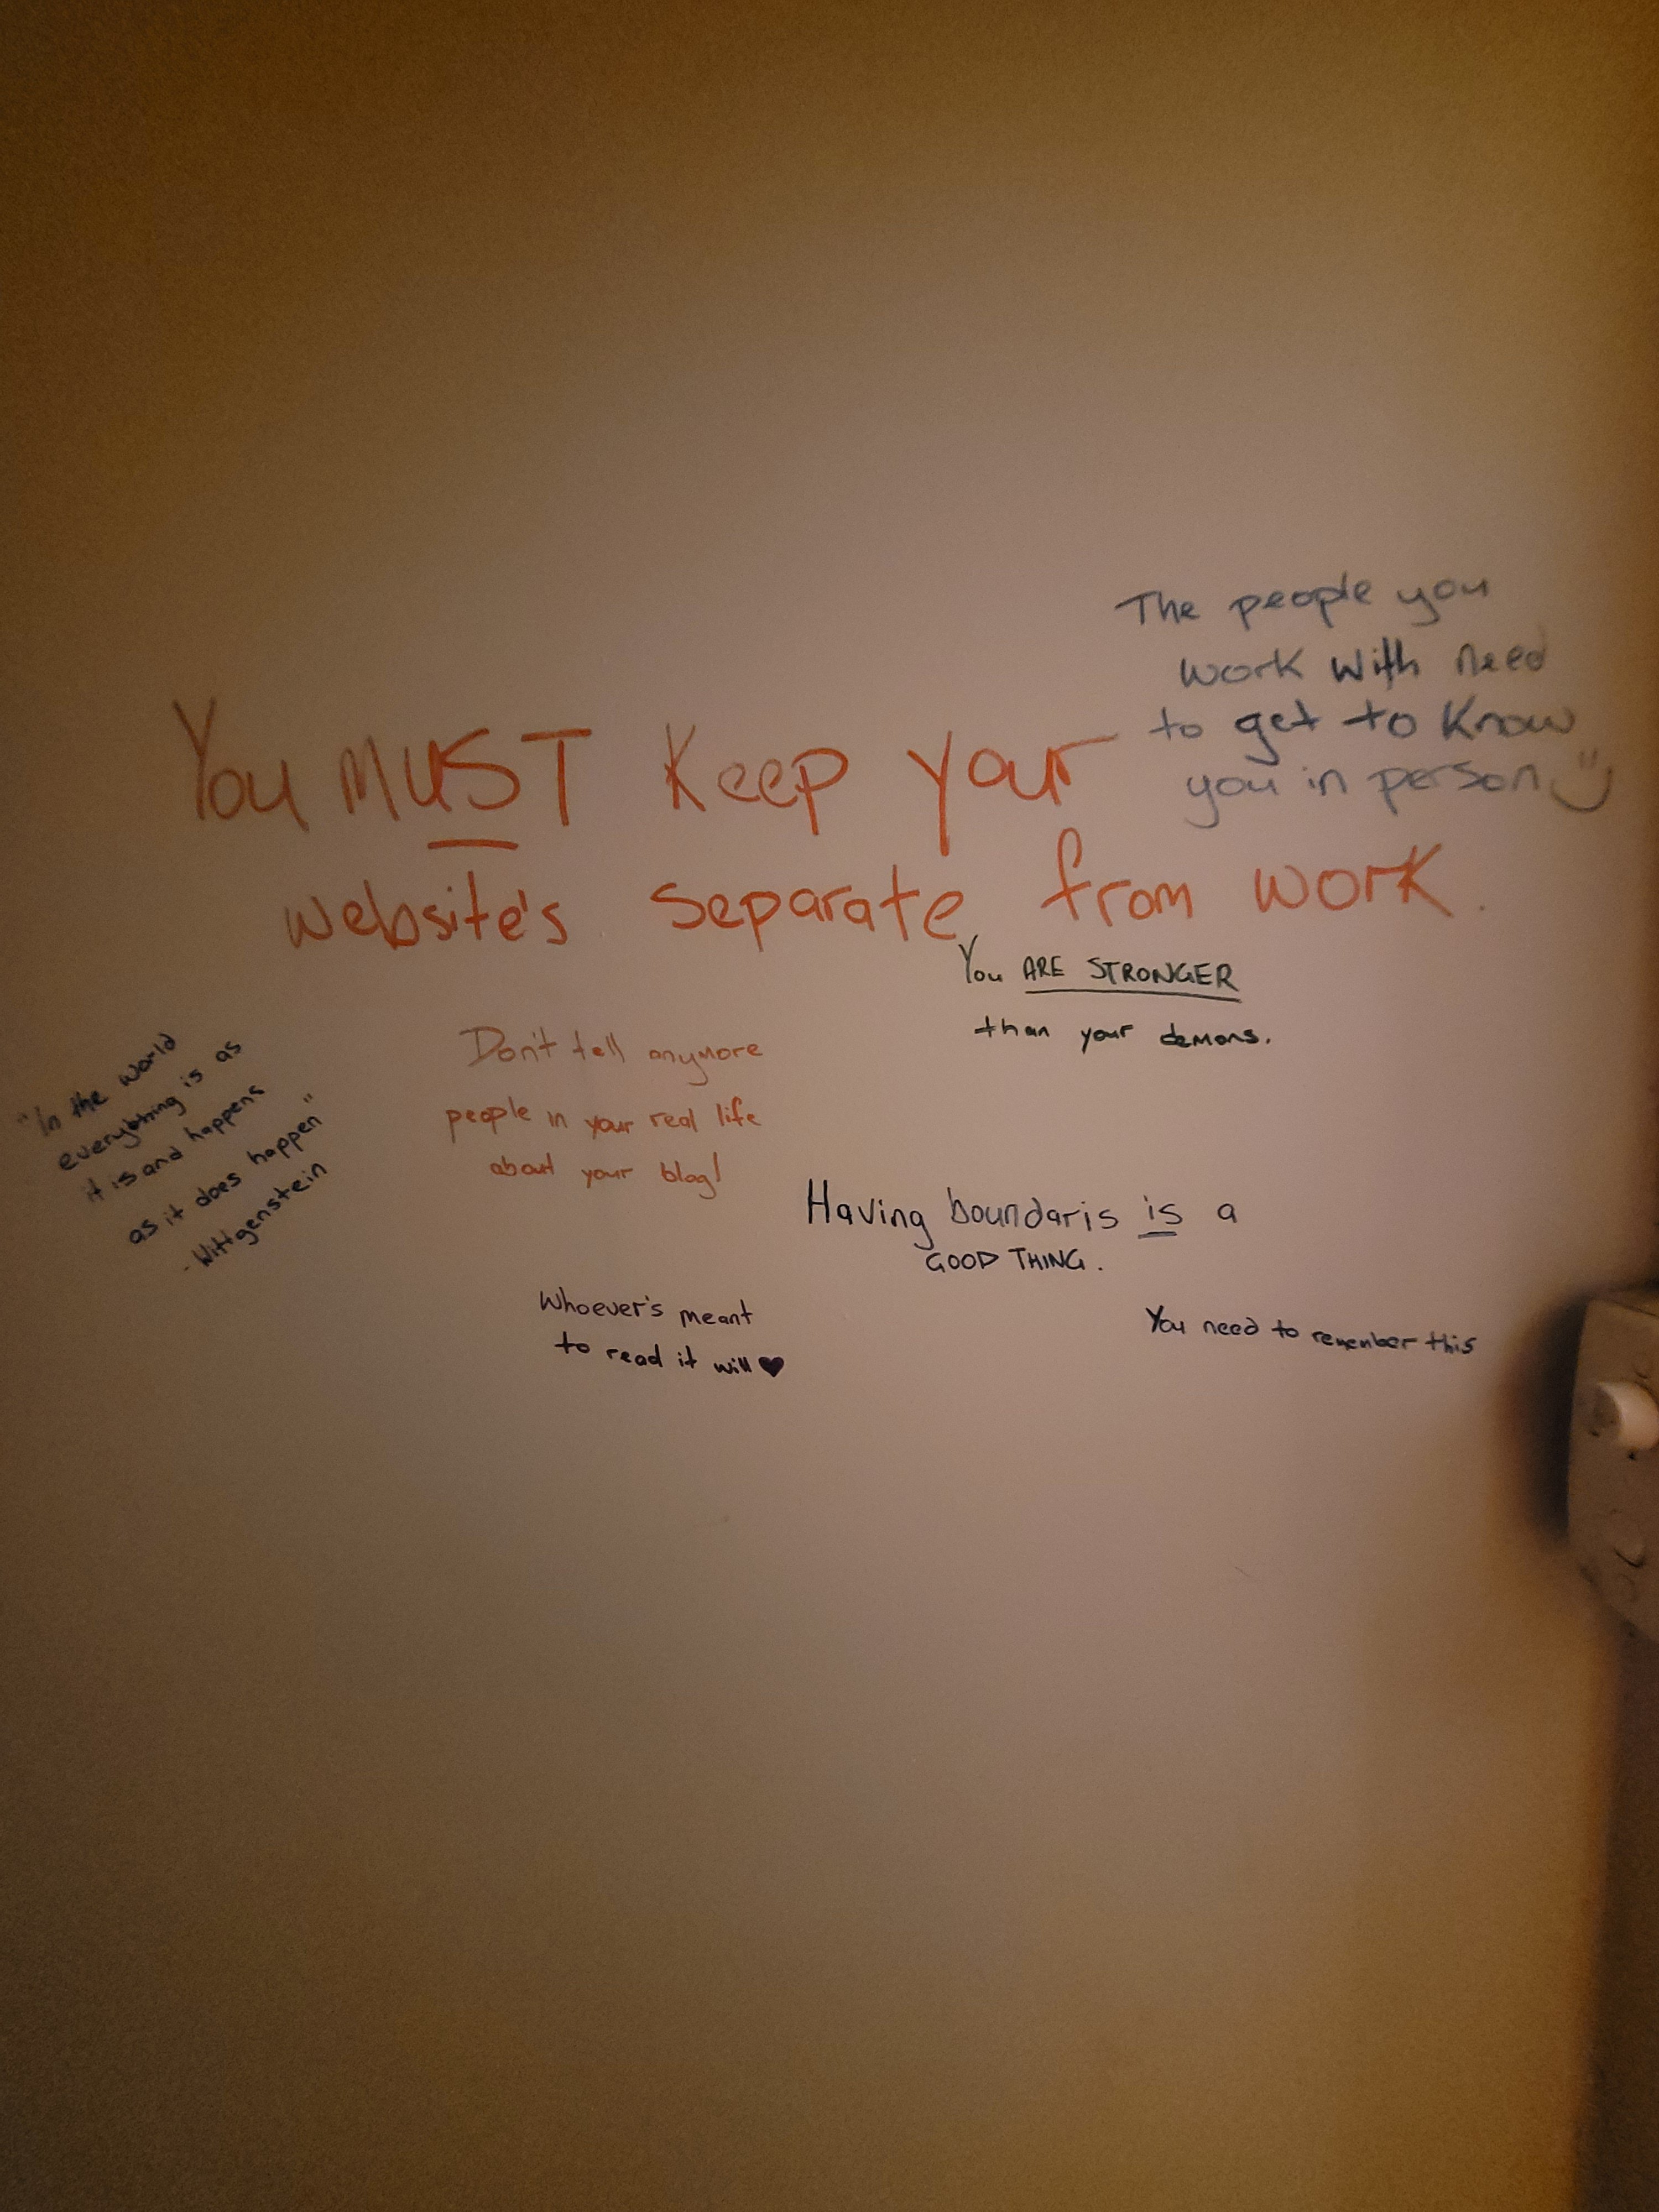 The people you
work with need
to get to know
you in person
You MUST Keep your
website's separate from work.
You ARE STRONGER
than your demons.
Don't tell anymore
people in your real life
about your blog!
"In the world
everything is as
it is and happens
as it does happen"
- Wittgenstein
Having boundaris is a
GOOD THING.
Whoever's meant
to read it will ♥
You need to remember this